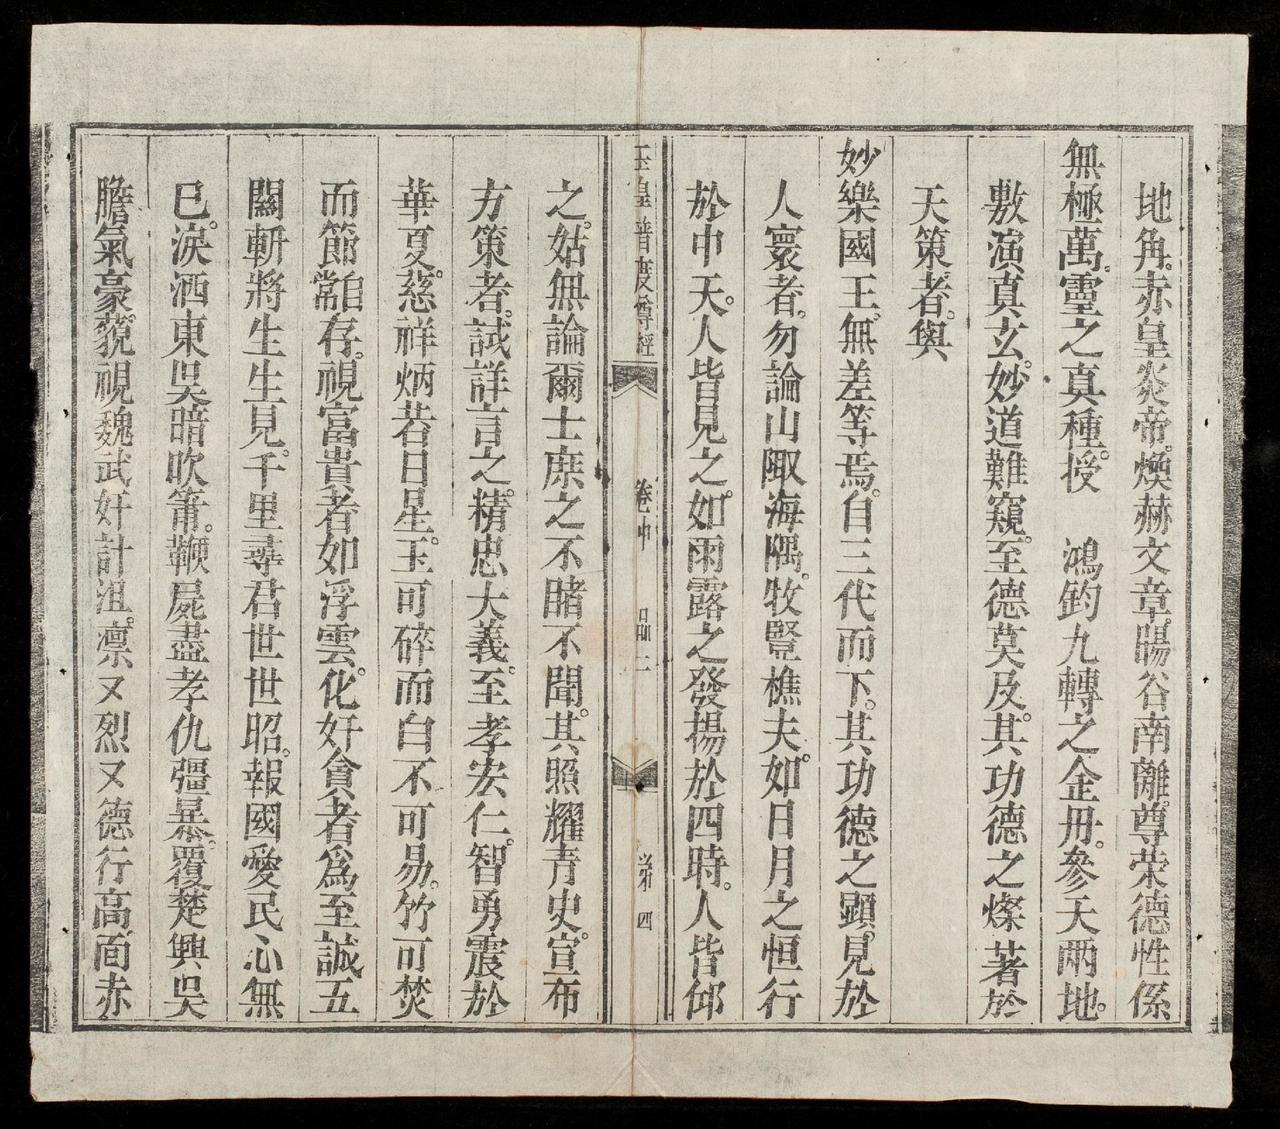 地角。赤皇炎帝。煥赫文章。暘谷南離。尊荣德性。係
無極萬靈之真種。授　鴻鈞九轉之金冊。參天兩地。
敷演真玄。妙道難窺。至德莫及。其功德之燦著於
天策者。與
妙樂國王。無差等焉。自三代而下。其功德之顯見於
人寰者。勿論山陬海隅。牧豎樵夫。如日月之恒行
於中天。人皆見之。如雨露之發揚於四時。人皆仰
玉皇普度尊經　卷中　品二　第四
之。姑無論爾士庶之不睹不聞。其照耀青史。宣布
方策者。試詳言之。精忠大義。至孝安仁。智勇震於
華夏。慈祥炳若日星。玉可碎而白不可易。竹可焚
而節常自存。視富貴者如浮雲。化奸貪者為至誠五
關斬將生生見。千里尋君世世昭。報國愛民心無
已。淚洒東吳暗吹簫。鞭屍盡孝仇彊暴。覆楚興吳
膽氣豪。藐視魏武奸計沮。凛又烈又德行高。面赤